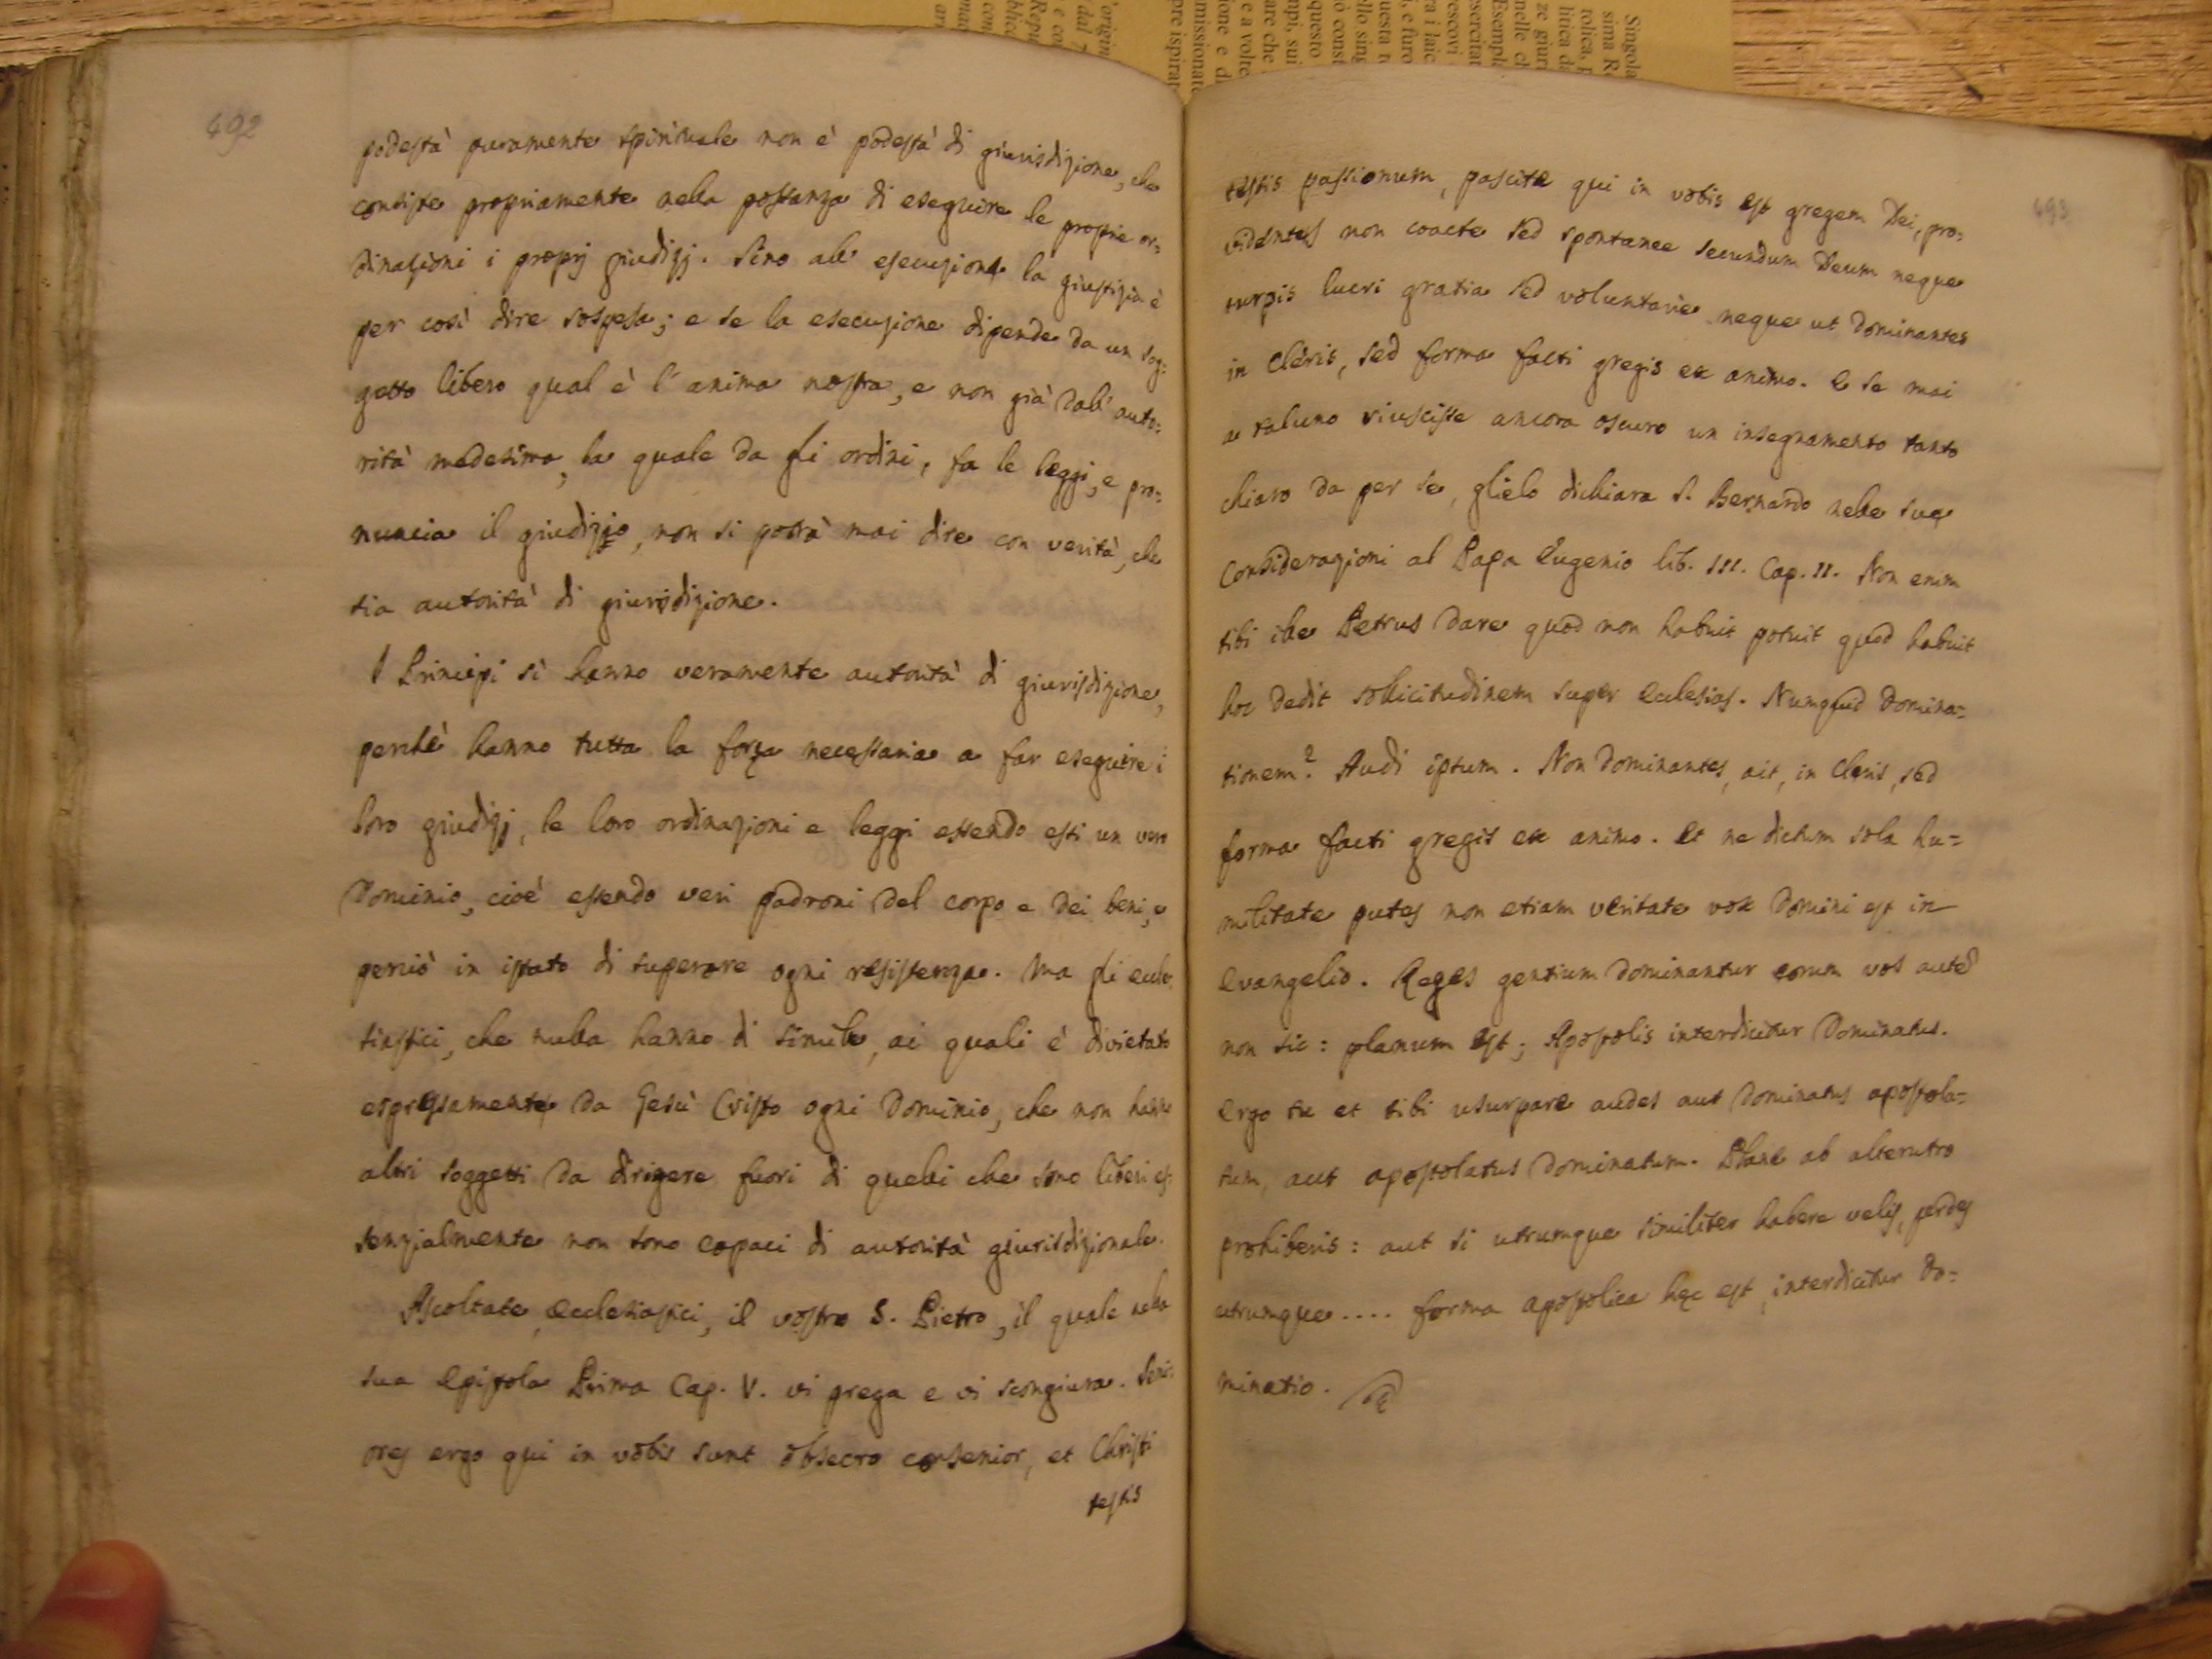 492
podestà puramente spirituale non è podestà di giurisdizione, che
consiste propriamente nella possanza di eseguire le proprie or=
dinazioni i proprj giudizj. Sino all' esecuzione la giustizia è
per così dire sospesa; e se la esecuzione dipende da un sog=
getto libero qual è l'anima nostra, e non già dall' auto=
rità medesima, la quale da gli ordini, fa le leggi, e pro=
nuncia il giudizio, non si potrà mai dire con verità, che
sia autorità di giurisdizione.
I Principi sì hanno veramente autorità di giurisdizione,
perchè hanno tutta la forza necessaria a far eseguire i
loro giudizj, le loro ordinazioni e leggi essendo essi un vero
Dominio, cioè essendo veri padroni del corpo e dei beni, e
perciò in istato di superare ogni resistenza. Ma gli eccle=
siastici, che nulla hanno di simile, ai quali è divietato
espressamente da Gesù Cristo ogni Dominio, che non hanno
altri soggetti da dirigere fuori di quelli che sono liberi es=
senzialmente non sono capaci di autorità giurisdizionale.
Ascoltate, Ecclesiastici, il vostro S. Pietro, il quale nella
sua Epistola Prima Cap. V. vi prega e vi scongiura. Seni=
ores ergo qui in vobis sunt obsecro consenior, et Christi
testis
493
testis passionum, pascite qui in vobis est gregem Dei, pro=
videntes non coacte sed spontanee secundum Deum neque
turpis lucri gratia sed voluntarie neque ut dominantes
in Cleris, sed forma facti gregis ex animo. E se mai
a taluno riuscisse ancora oscuro un insegnamento tanto
chiaro da per se, glielo dichiara S. Bernardo nelle sue
Considerazioni al Papa Eugenio lib. III. Cap. II. Non enim
tibi ille Petrus dare quod non habuit potuit quod habuit
hoc dedit sollicitudinem super Ecclesias. Numquid Domina=
tionem? Audi ipsum. Non Dominantes, ait, in Cleris, sed
forma facti gregis ex animo. Et ne dictum sola hu=
militate putes non etiam veritate vox Domini est in
Evangelio. Reges gentium dominantur eorum vos autem
non sic: planum est; Apostolis interdicitur Dominatus.
Ergo tu et tibi usurpare audes aut Dominatus apostola=
tum, aut apostolatus Dominatum. Plane ab alterutro
prohiberis: aut si utrumque similiter habere velis, perdes
utrumque .... forma apostolica hæc est, interdicitur Do=
minatio.